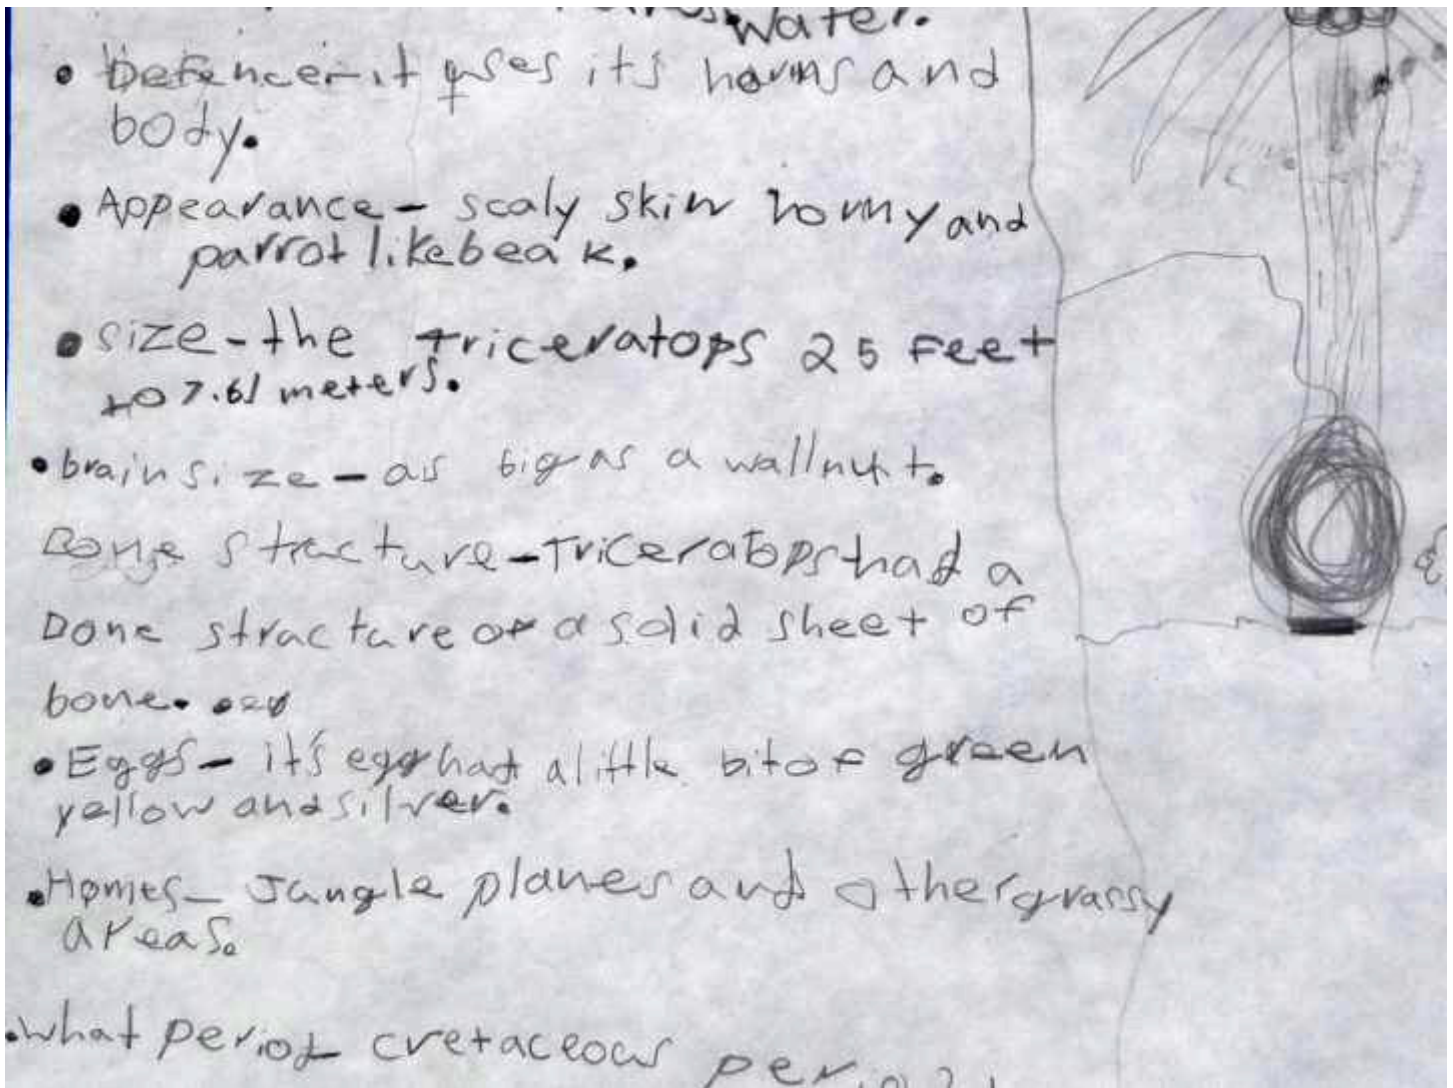 Water.
• Defence-it uses its horns and
body.
• Appearance- scaly skin horny and
parrot like beak.
• size-the triceratops 25 feet
to 7.61 meters.
• brain size - as big as a wallnut.
Bone structure-Triceratops had a
Bone structure of a solid sheet of
bone.
• Eggs- it's egg had a little bit of green
yellow and silver.
• Homes- Jungle planes and other grassy
areas.
• What period cretaceous period